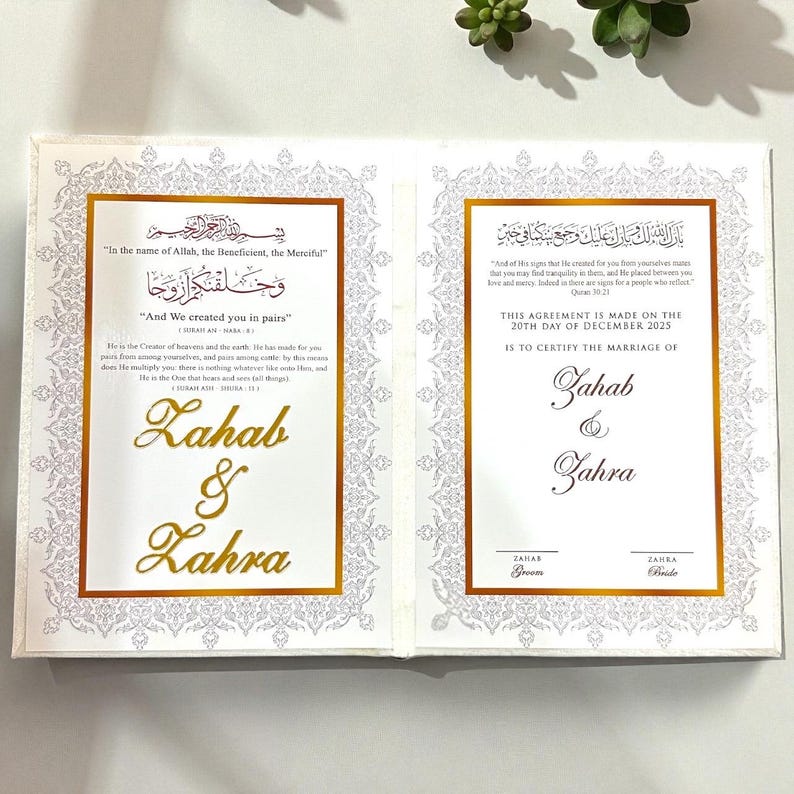 بسم الله الرحمن الرحيم
“In the name of Allah, the Beneficient, the Merciful”
وَخَلَقْنَكُمْ أَزْوَجًا
“And We created you in pairs”
( SURAH AN - NABA : 8 )
He is the Creator of heavens and the earth: He has made for you
pairs from among yourselves, and pairs among cattle: by this means
does He multiply you: there is nothing whatever like onto Him, and
He is the One that hears and sees (all things).
( SURAH ASH - SHURA : 11 )
Zahab
&
Zahra
بارك الله لك وبارك عليك وجمع بينكما في خير
“And of His signs that He created for you from yourselves mates
that you may find tranquility in them, and He placed between you
love and mercy. Indeed in there are signs for a people who reflect.”
Quran 30:21
THIS AGREEMENT IS MADE ON THE
20TH DAY OF DECEMBER 2025
IS TO CERTIFY THE MARRIAGE OF
Zahab
&
Zahra
ZAHAB
Groom
ZAHRA
Bride